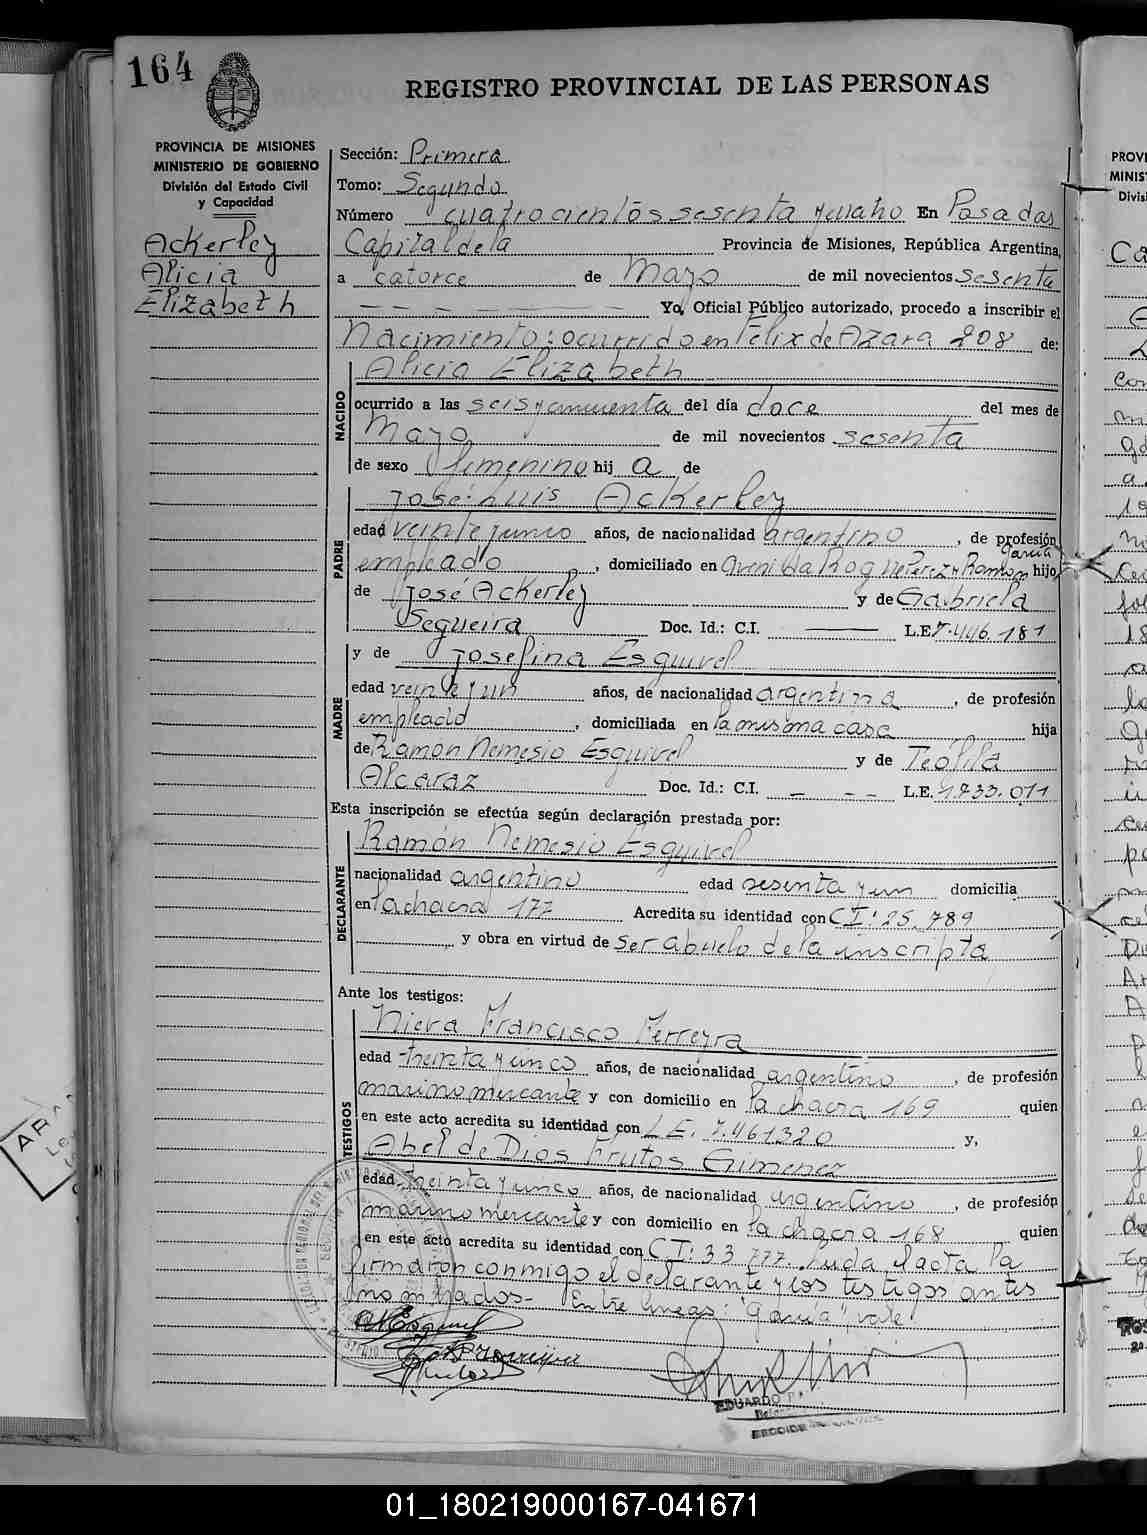 164
REGISTRO PROVINCIAL DE LAS PERSONAS
PROVINCIA DE MISIONES
MINISTERIO DE GOBIERNO
División del Estado Civil
y Capacidad
Ackerley
Alicia
Elizabeth
Sección: Primera
Tomo: Segundo
Número cuatrocientos sesenta y cuatro En Posadas
Capital de la Provincia de Misiones, República Argentina,
a catorce de Mayo de mil novecientos sesenta
Yo, Oficial Público autorizado, procedo a inscribir el
Nacimiento: ocurrido en Félix de Azara 208 de:
NACIDO
Alicia Elizabeth
ocurrido a las seis y cincuenta del día doce del mes de
Mayo de mil novecientos sesenta
de sexo femenino hij a de
PADRE
José Luis Ackerley
edad veinte y cinco años, de nacionalidad argentino, de profesión
García
empleado, domiciliado en Avenida Roque Perez y Ramon hijo
de José Ackerley y de Gabriela
Segueira Doc. Id.: C.I. L.E. 7.446.181
MADRE
y de Josefina Esquivel
edad veinte y un años, de nacionalidad argentina, de profesión
empleado, domiciliada en la misma casa hija
de Ramón Nemesio Esquivel y de Teófila
Alcaraz Doc. Id.: C.I. - - - L.E. 1.733.011
Esta inscripción se efectúa según declaración prestada por:
DECLARANTE
Ramón Nemesio Esquivel
nacionalidad argentino edad sesenta y un domicilia
en la chacra 177 Acredita su identidad con CI: 25.789
y obra en virtud de ser abuelo de la inscripta
Ante los testigos:
TESTIGOS
Nieva Francisco Ferreyra
edad treinta y cinco años, de nacionalidad argentino, de profesión
marino mercante y con domicilio en la chacra 169 quien
en este acto acredita su identidad con LE. 7.461320 y,
Abel de Dios Frutos Gimenez
edad treinta y cinco años, de nacionalidad argentino, de profesión
marino mercante y con domicilio en la chacra 168 quien
en este acto acredita su identidad con CI: 33.777. Leida el acta la
firmaron conmigo el declarante y los testigos antes
nombrados- Entre lineas: "García", vale.
EDUARDO
01_180219000167-041671